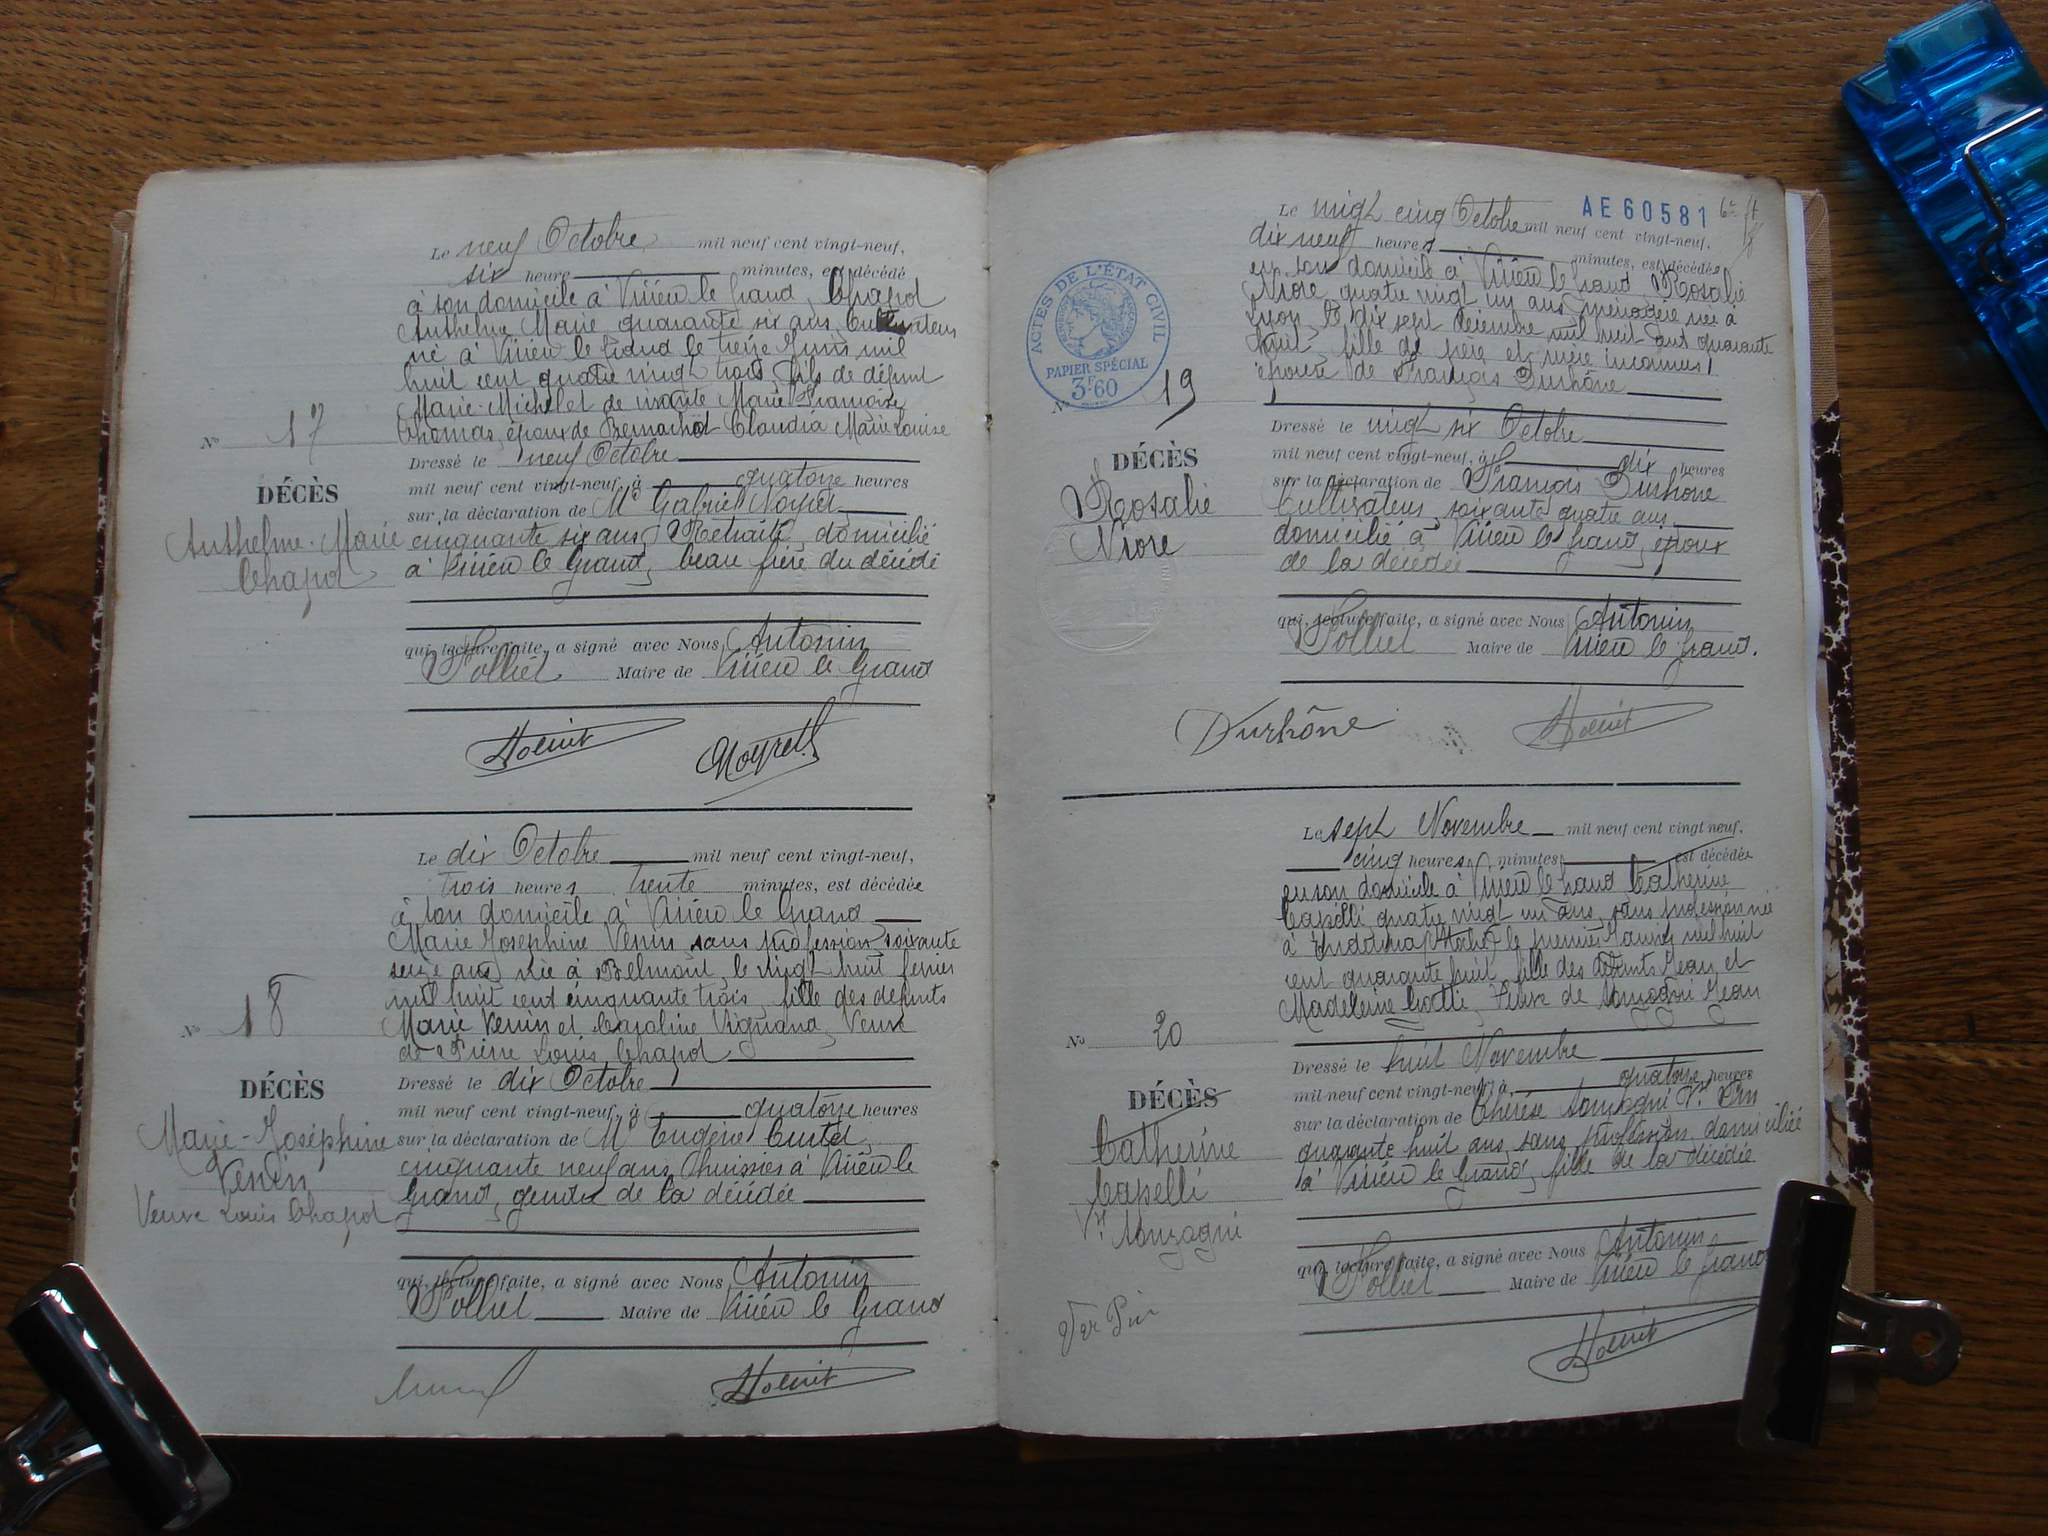 Le neuf Octobre mil neuf cent vingt-neuf,
six heure minutes, est décédé
à son domicile à Virieu le Grand, Chapot
Anthelme Marie quarante six ans, Cultivateur
né à Virieu le Grand le treize Juin mil
huit cent quatre vingt trois fils de défunt
Marie-Michel et de vivante Marie Françoise
Thomas, époux de Claudia Marie Louise
Dressé le neuf Octobre
mil neuf cent vingt-neuf, à quatorze heures
sur la déclaration de Mr Gabriel Noyret,
cinquante six ans, Retraité, domicilié
à Virieu le Grand, beau frère du décédé
qui, lecture faite, a signé avec Nous, Antonin
Polliet Maire de Virieu le Grand
No 17
DÉCÈS
Anthelme-Marie
Chapot
Polliet Noyret
Le dix Octobre mil neuf cent vingt-neuf,
trois heures trente minutes, est décédée
à son domicile à Virieu le Grand
Marie Josephine Venin sans profession, soixante
seize ans, née à Belmont, le vingt huit février
mil huit cent cinquante trois, fille des défunts
Marie Venin et Caroline Vignand, Veuve
de Pierre Louis Chapot
Dressé le dix Octobre
mil neuf cent vingt-neuf, à quatorze heures
sur la déclaration de Mr Eugène Curtet,
cinquante neuf ans, huissier à Virieu le
Grand, gendre de la décédée
qui, lecture faite, a signé avec Nous, Antonin
Polliet Maire de Virieu le Grand
No 18
DÉCÈS
Marie-Joséphine
Venin
Veuve Louis Chapot
Polliet
AE 60581
Le vingt cinq Octobre mil neuf cent vingt-neuf,
dix neuf heures minutes, est décédée
en son domicile à Virieu le Grand, Rosalie
Niore quatre vingt un ans, ménagère née à
Lyon le dix sept décembre mil huit cent quarante
huit, fille de père et mère inconnus,
épouse de François Durhône
ACTES DE L'ÉTAT CIVIL
PAPIER SPÉCIAL
3F60
No 19
DÉCÈS
Rosalie
Niore
Dressé le vingt six Octobre
mil neuf cent vingt-neuf, à dix heures
sur la déclaration de François Durhône
Cultivateur, soixante quatre ans,
domicilié à Virieu le Grand, époux
de la décédée
qui, lecture faite, a signé avec Nous Antonin
Polliet Maire de Virieu le Grand.
Durhône Polliet
Le sept Novembre mil neuf cent vingt neuf,
cinq heures minutes est décédée
en son domicile à Virieu le Grand Catherine
Capelli, quatre vingt un ans, sans profession née
à le premier Janvier mil huit
cent quarante huit, fille des défunts Jean et
Madeleine Veuve de Sonzogni Jean
Dressé le huit Novembre
mil neuf cent vingt-neuf, à quatorze heures
sur la déclaration de Thérèse Sonzogni Ve Pin
quarante huit ans, sans profession, domiciliée
à Virieu le Grand, fille de la décédée
No 20
DÉCÈS
Catherine
Capelli
Ve Sonzogni
qui, lecture faite, a signé avec Nous Antonin
Polliet Maire de Virieu le Grand
Polliet